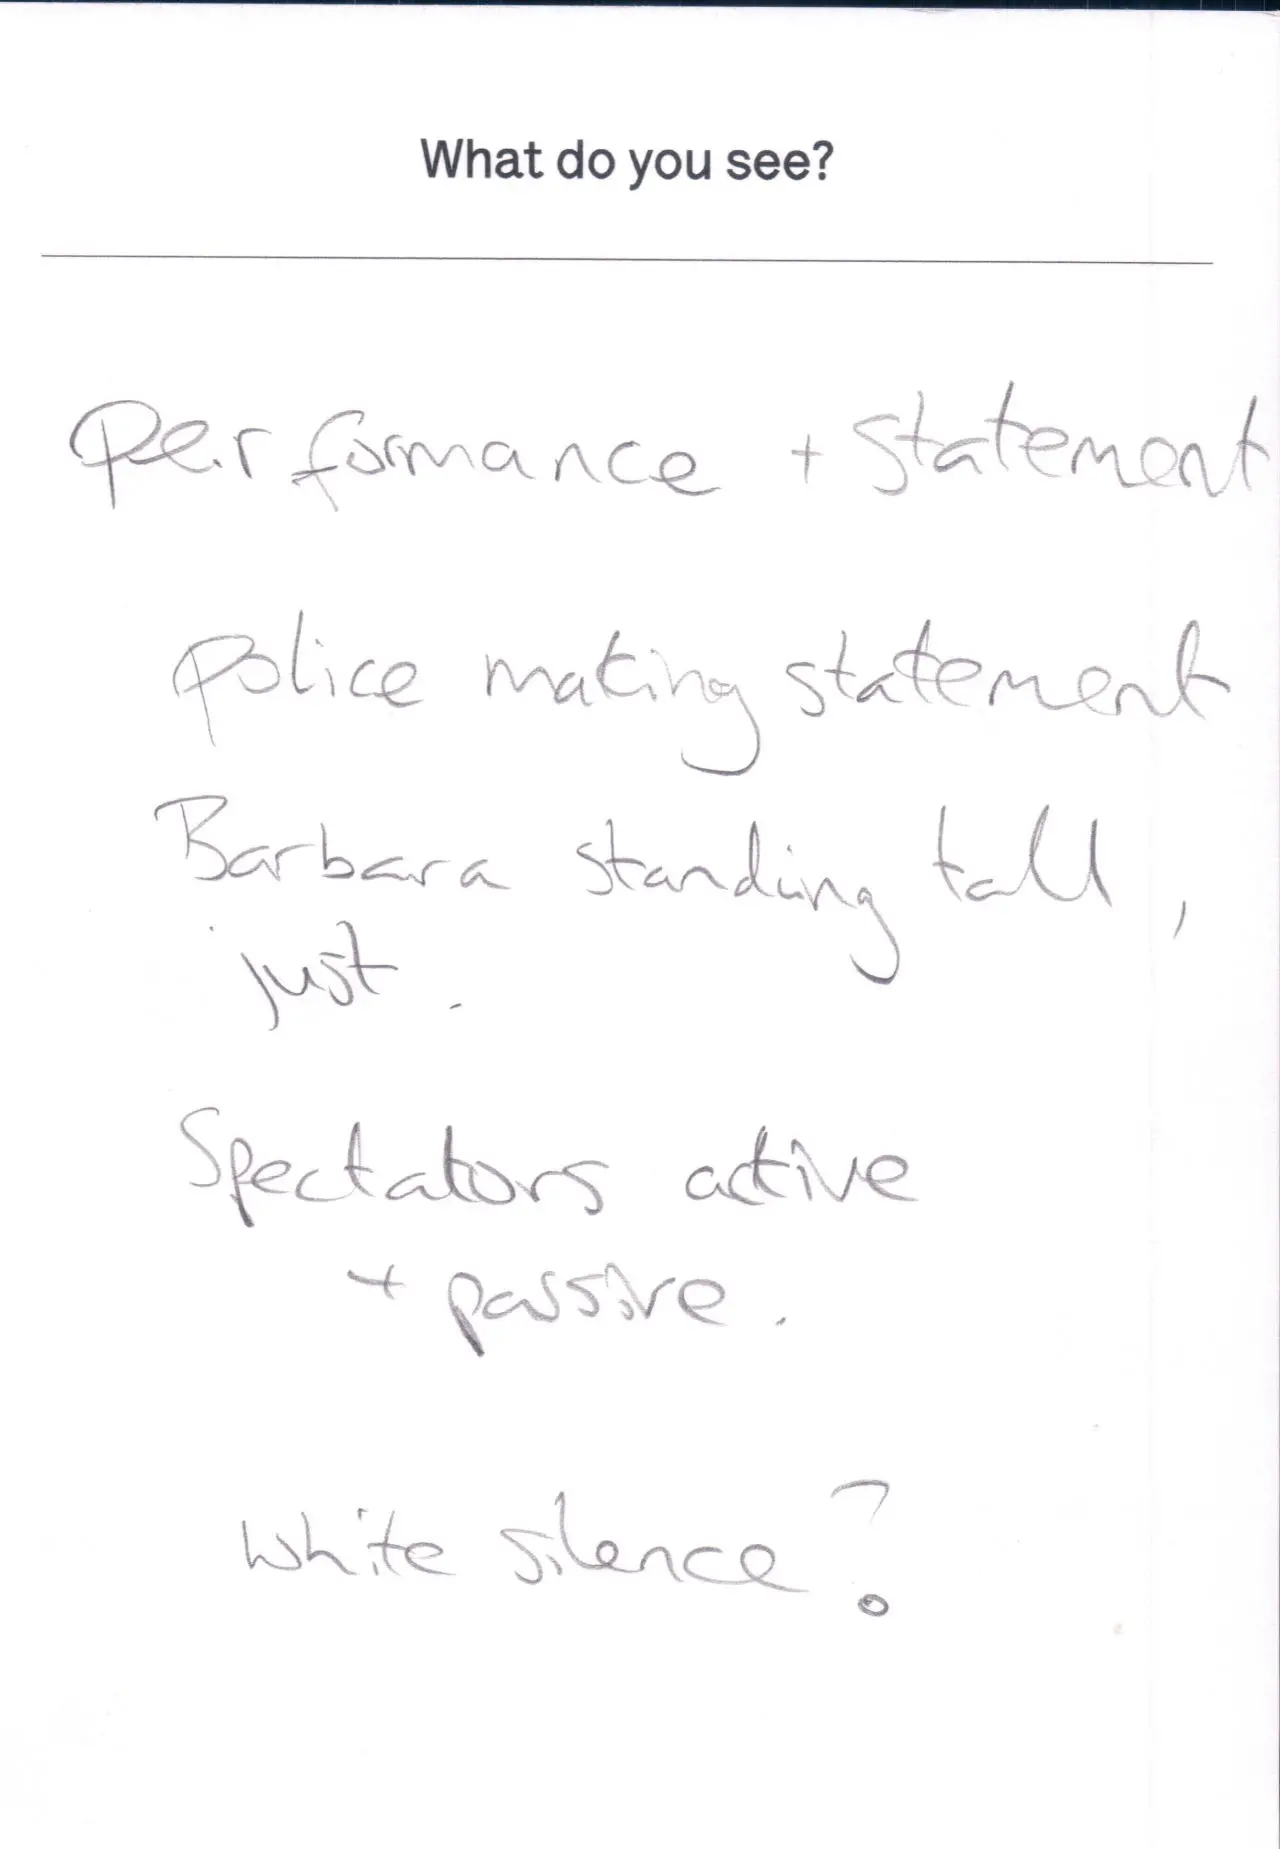 What do you see?
Performance + statement
police making statement
Barbara standing tall,
just.
Spectators active
+ passive.
white silence?